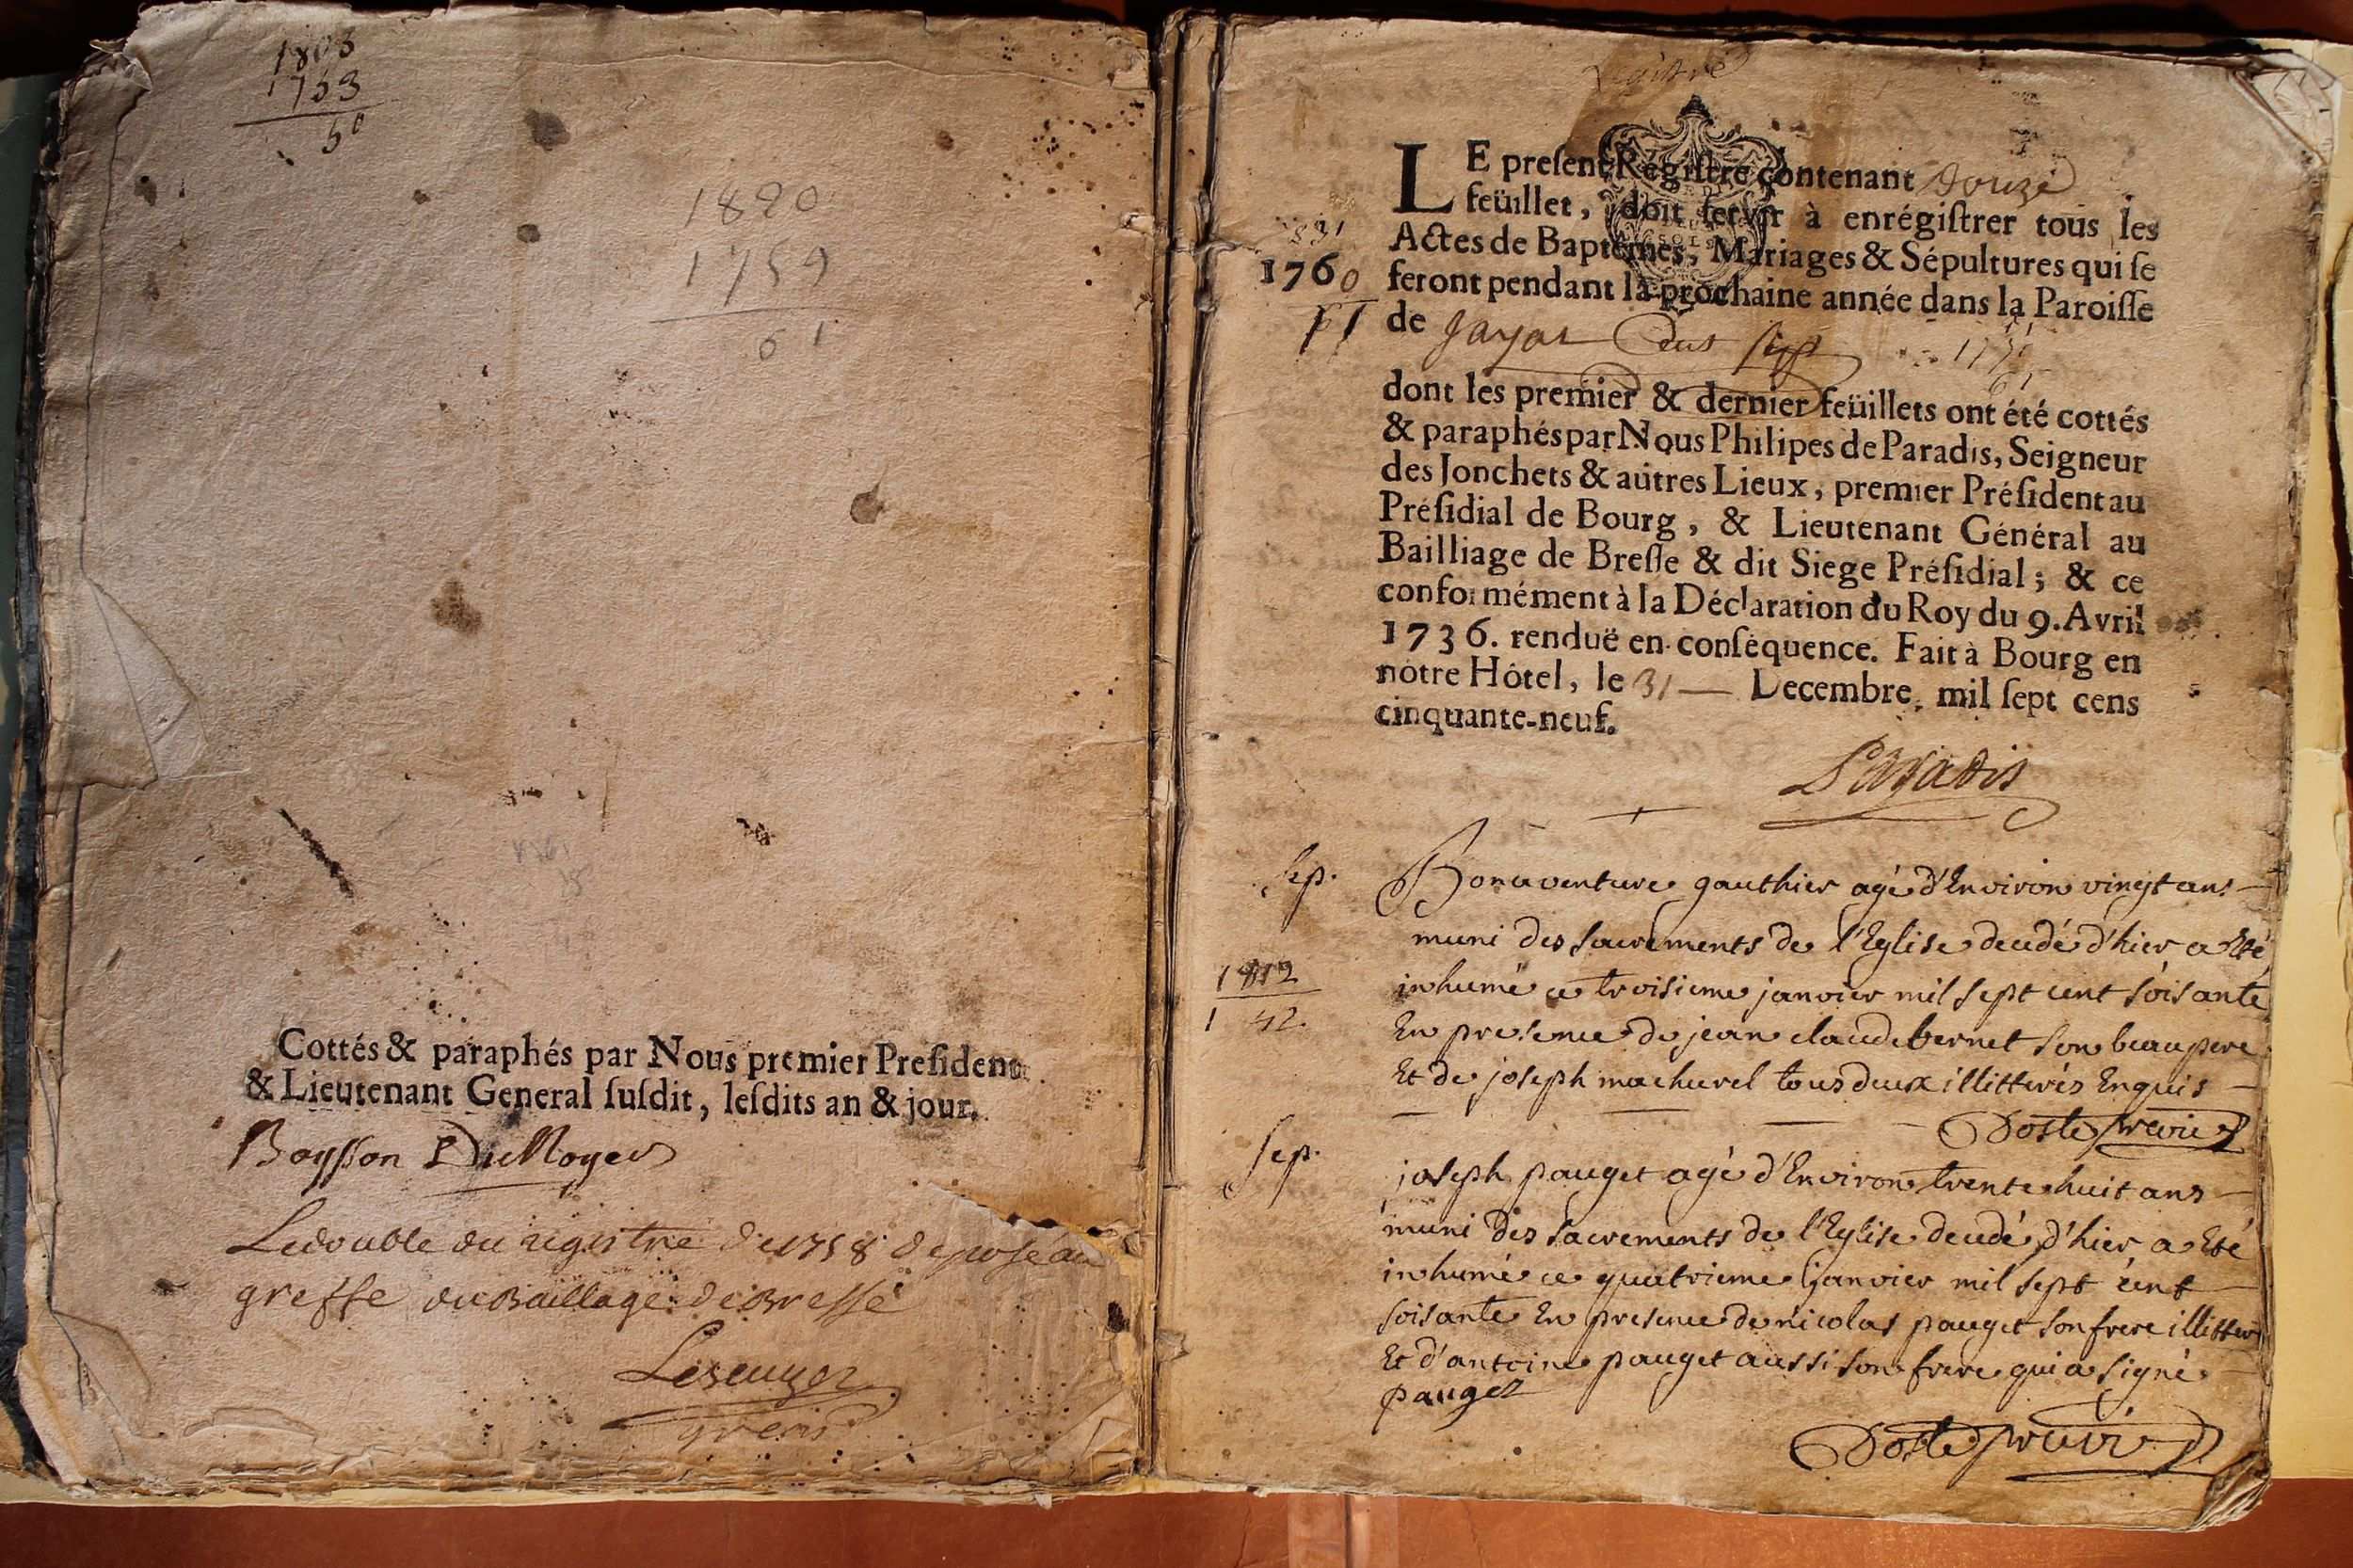 1803
1753
50
1820
1759
61
Cottés & paraphés par Nous premier Preſident
& Lieutenant General ſuſdit, leſdits an & jour.
Ledouble du registre de 1758 deposé au
greffe du Baillage de Bresse
1760
LE preſent Régiſtre contenant douze
feüillet, doit ſervir à enrégiſtrer tous les
Actes de Baptêmes, Mariages & Sépultures qui ſe
feront pendant la prochaine année dans la Paroiſſe
de Jayat
dont les premier & dernier feüillets ont été cottés
& paraphés par Nous Philipes de Paradis, Seigneur
des Jonchets & autres Lieux, premier Préſident au
Préſidial de Bourg, & Lieutenant Général au
Bailliage de Breſſe & dit Siege Préſidial; & ce
conformément à la Déclaration du Roy du 9. Avril
1736. renduë en conſéquence. Fait à Bourg en
nôtre Hôtel, le 31 Decembre, mil ſept cens
cinquante-neuf.
Paradis
Sep.
Bonaventure gauthier agé d'Environ vingt ans
muni des sacrements de l'Eglise decedé d'hier a Eté
inhumé ce troisieme janvier mil sept cent soisante
En presence de jean claude bernet son beaupere
Et de joseph machurel tous deux illitterés Enquis
1812
1 42
Sep.
joseph pauget agé d'Environ trente huit ans
muni des sacrements de l'Eglise decedé d'hier a Eté
inhumé ce quatrieme janvier mil sept cent
soisante En presence de nicolas pauget son frere illitteré
Et d'antoine pauget aussi son frere qui a signé
pauget